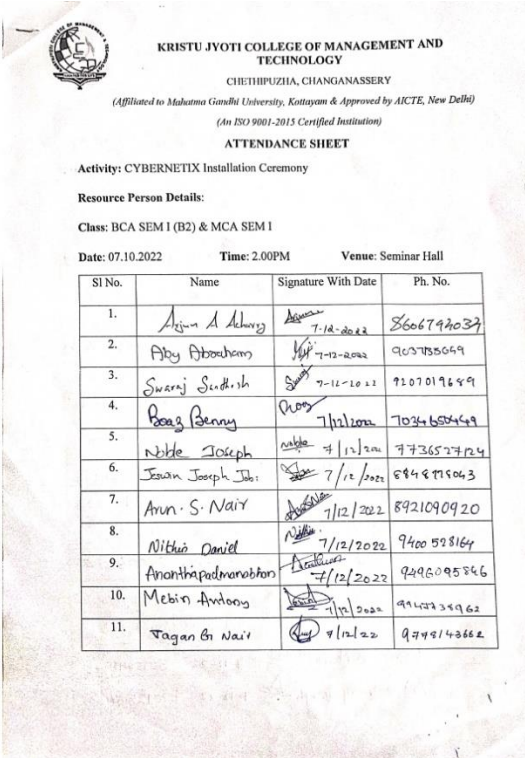 KRISTU JYOTI COLLEGE OF MANAGEMENT AND
TECHNOLOGY
CHETHIPUZHA, CHANGANASSERY
(Affiliated to Mahatma Gandhi University, Kottayam & Approved by AICTE, New Delhi)
(An ISO 9001-2015 Certified Institution)
ATTENDANCE SHEET
Activity: CYBERNETIX Installation Ceremony
Resource Person Details:
Class: BCA SEM I (B2) & MCA SEM I
Date: 07.10.2022 Time: 2.00PM Venue: Seminar Hall
Sl No. Name Signature With Date Ph. No.
1. Arjun A Acharya 7-12-2022 8606794034
2. Aby Abraham 7-12-2022
3. Swaraj Santhosh 7-12-2022 9207019689
4. Boaz Benny 7/12/2022 7034650449
5. Noble Joseph Noble 7/12/2022 7736527124
6. Jeswin Joseph Job: 7/12/2022
7. Arun. S. Nair 7/12/2022 8921090920
8. Nithin Daniel Nithin 7/12/2022 9400528164
9. Ananthapadmanabhan 7/12/2022 9496095846
10. Mebin Antony 7/12/2022
11. Jagan G Nair 7/12/22 9778143662